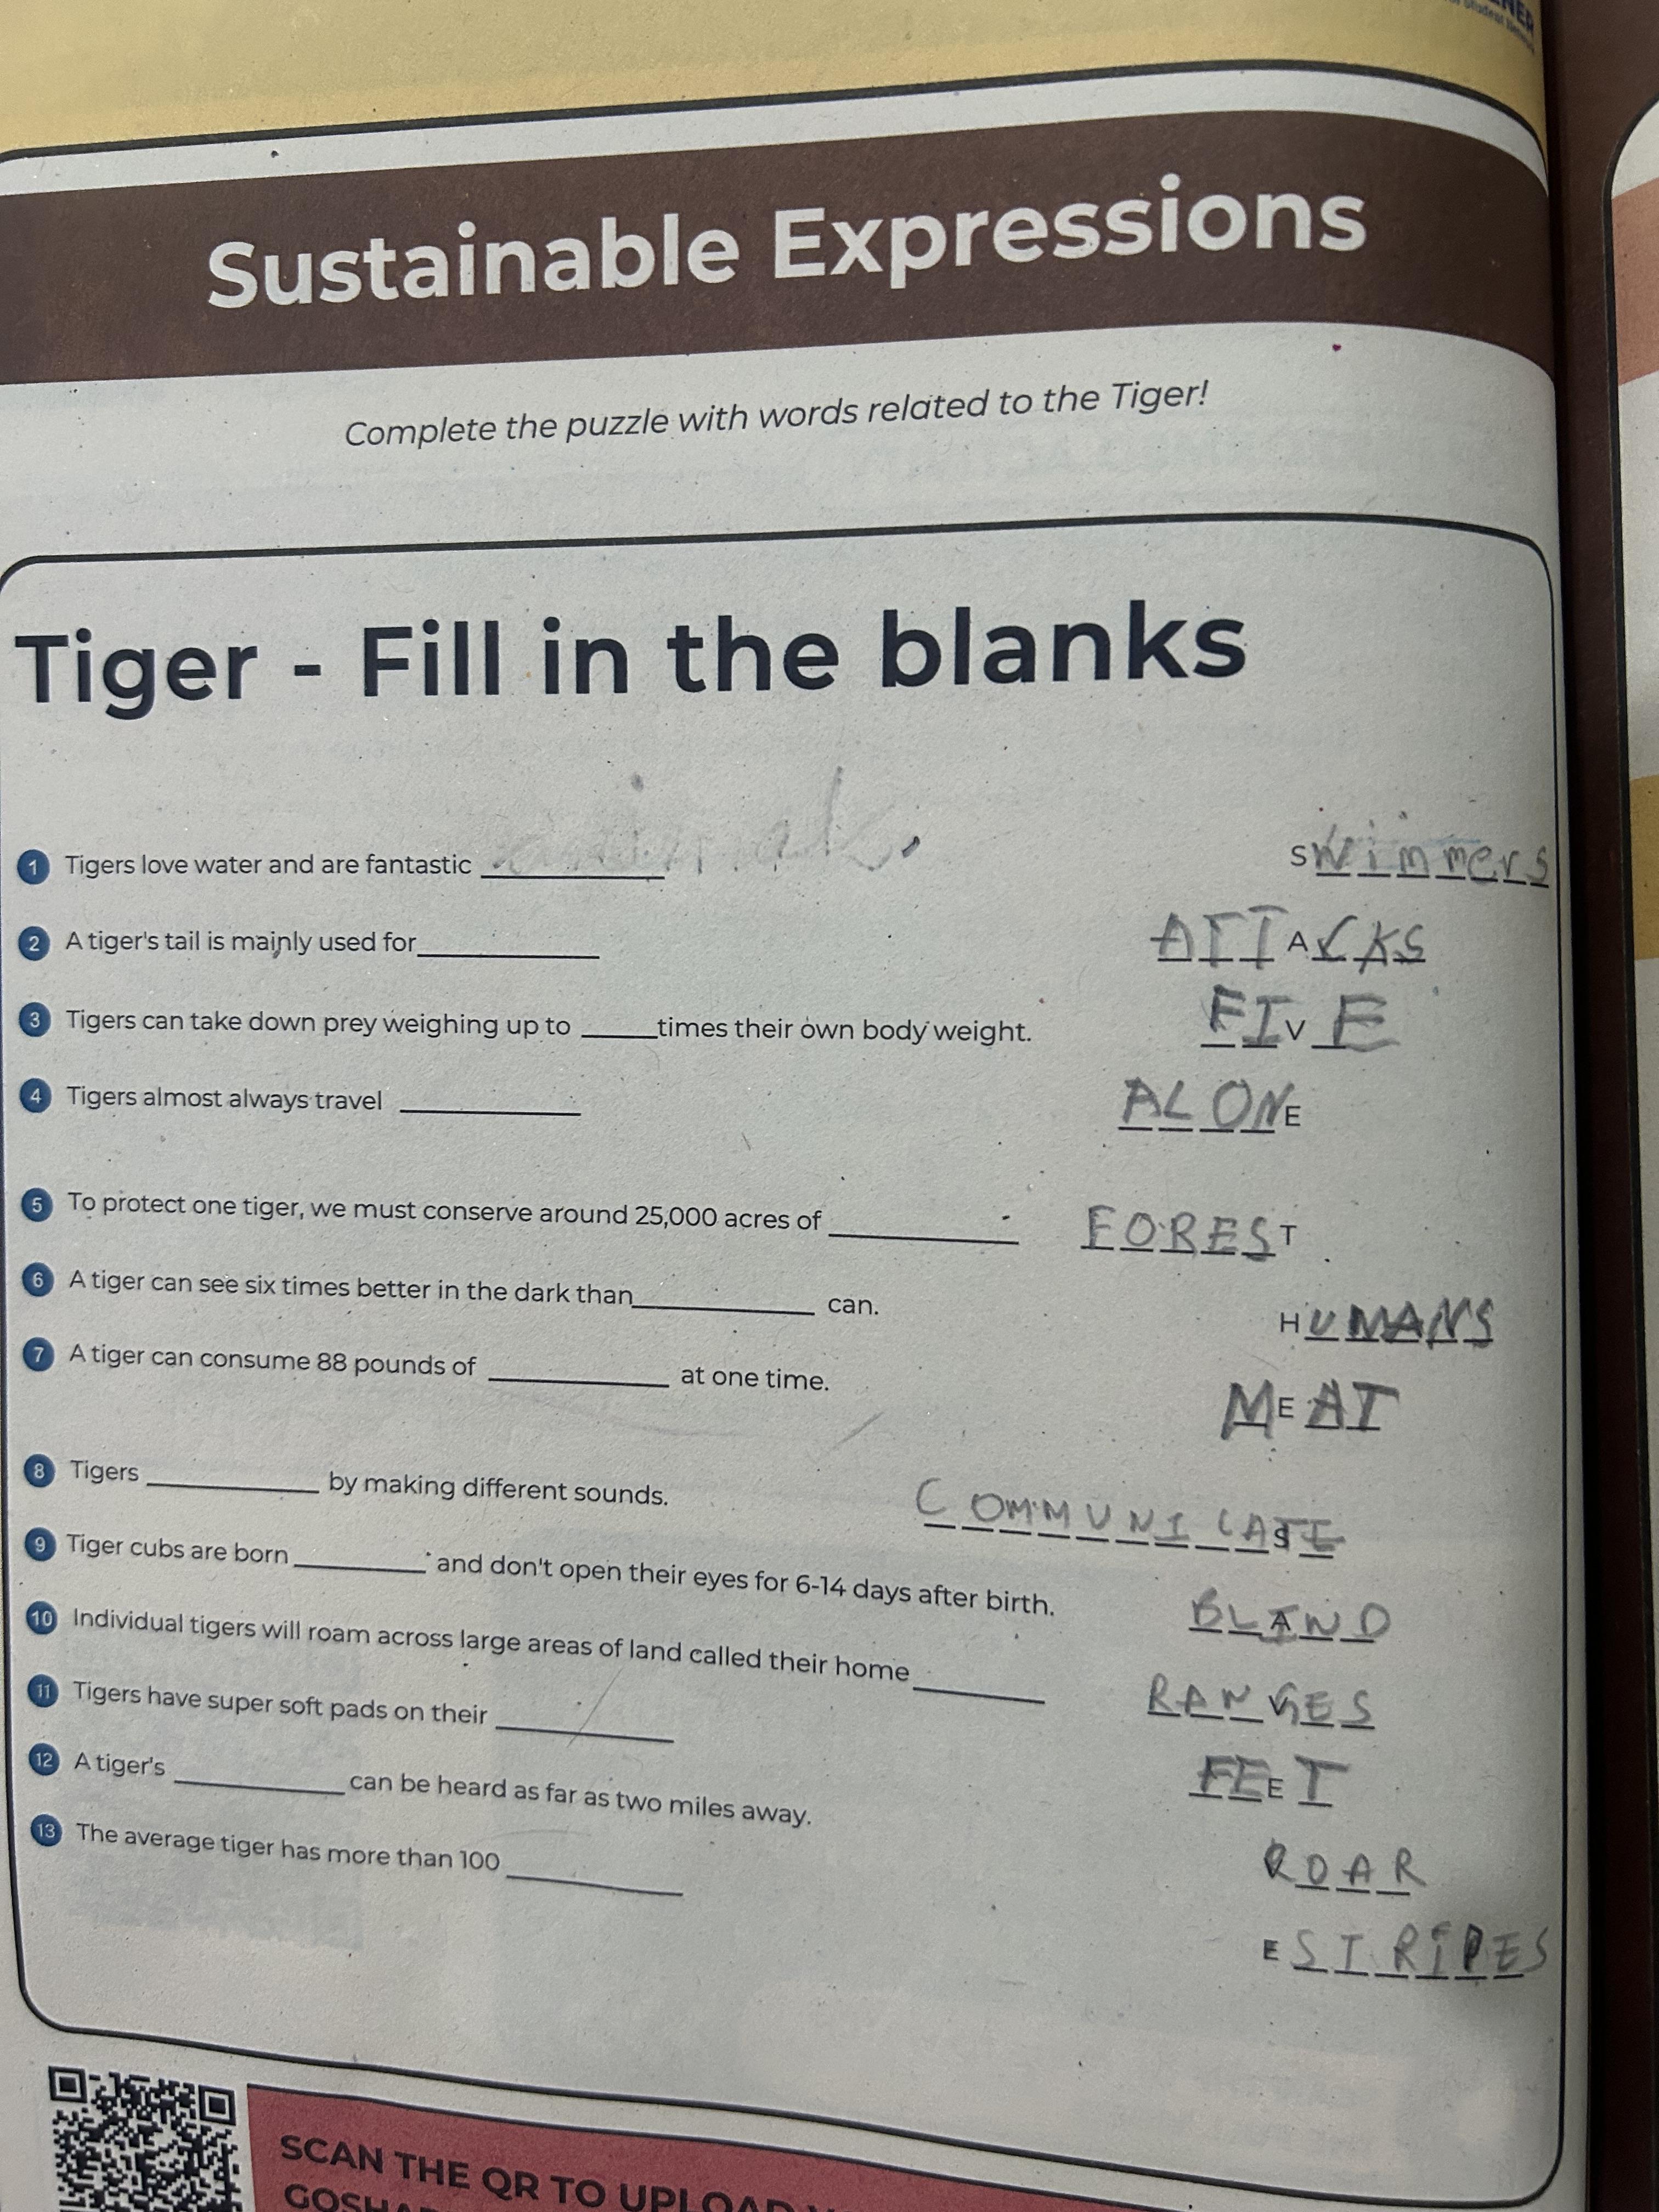 Sustainable Expressions
Complete the puzzle with words related to the Tiger!
Tiger - Fill in the blanks
1 Tigers love water and are fantastic ____________ Swimmers
2 A tiger's tail is mainly used for____________ ATTACKS
3 Tigers can take down prey weighing up to _____times their own body weight. FIVE
4 Tigers almost always travel ____________ ALONE
5 To protect one tiger, we must conserve around 25,000 acres of ____________ FOREST
6 A tiger can see six times better in the dark than____________ can. HUMANS
7 A tiger can consume 88 pounds of ____________ at one time. MEAT
8 Tigers ____________ by making different sounds. COMMUNICATE
9 Tiger cubs are born_________ and don't open their eyes for 6-14 days after birth. BLIND
10 Individual tigers will roam across large areas of land called their home_________ RANGES
11 Tigers have super soft pads on their ____________ FEET
12 A tiger's ____________ can be heard as far as two miles away. ROAR
13 The average tiger has more than 100 ____________ ESTRIPES
SCAN THE QR TO UPLOAD